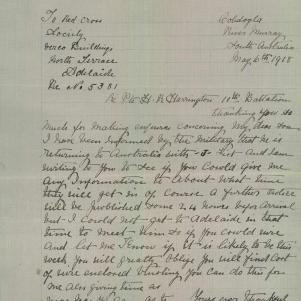 To Red Cross
Society
Verco Buildings
North Terrace
Adelaide
Re No 5381
Cobdogla
River Murray
South Australia
May 6th 1918
Re Pte H. W Harrington 11th Battalion
thanking you so
Much for making enquiries concerning My dear Son
I have been informed by the Military that he is
returning to Australia with Lot and am
writing to you to see if you could give me
any information to about what time
they will get in of course a further notice
will be published some 24 hours before arrival
but I could not get to Adelaide in that
time to meet him so if you could wire
and let me know if it is likely to be this
week you will greatly oblige you will find cost
of wire enclosed trusting you can do this for
me also giving time as
Yours ever thankful